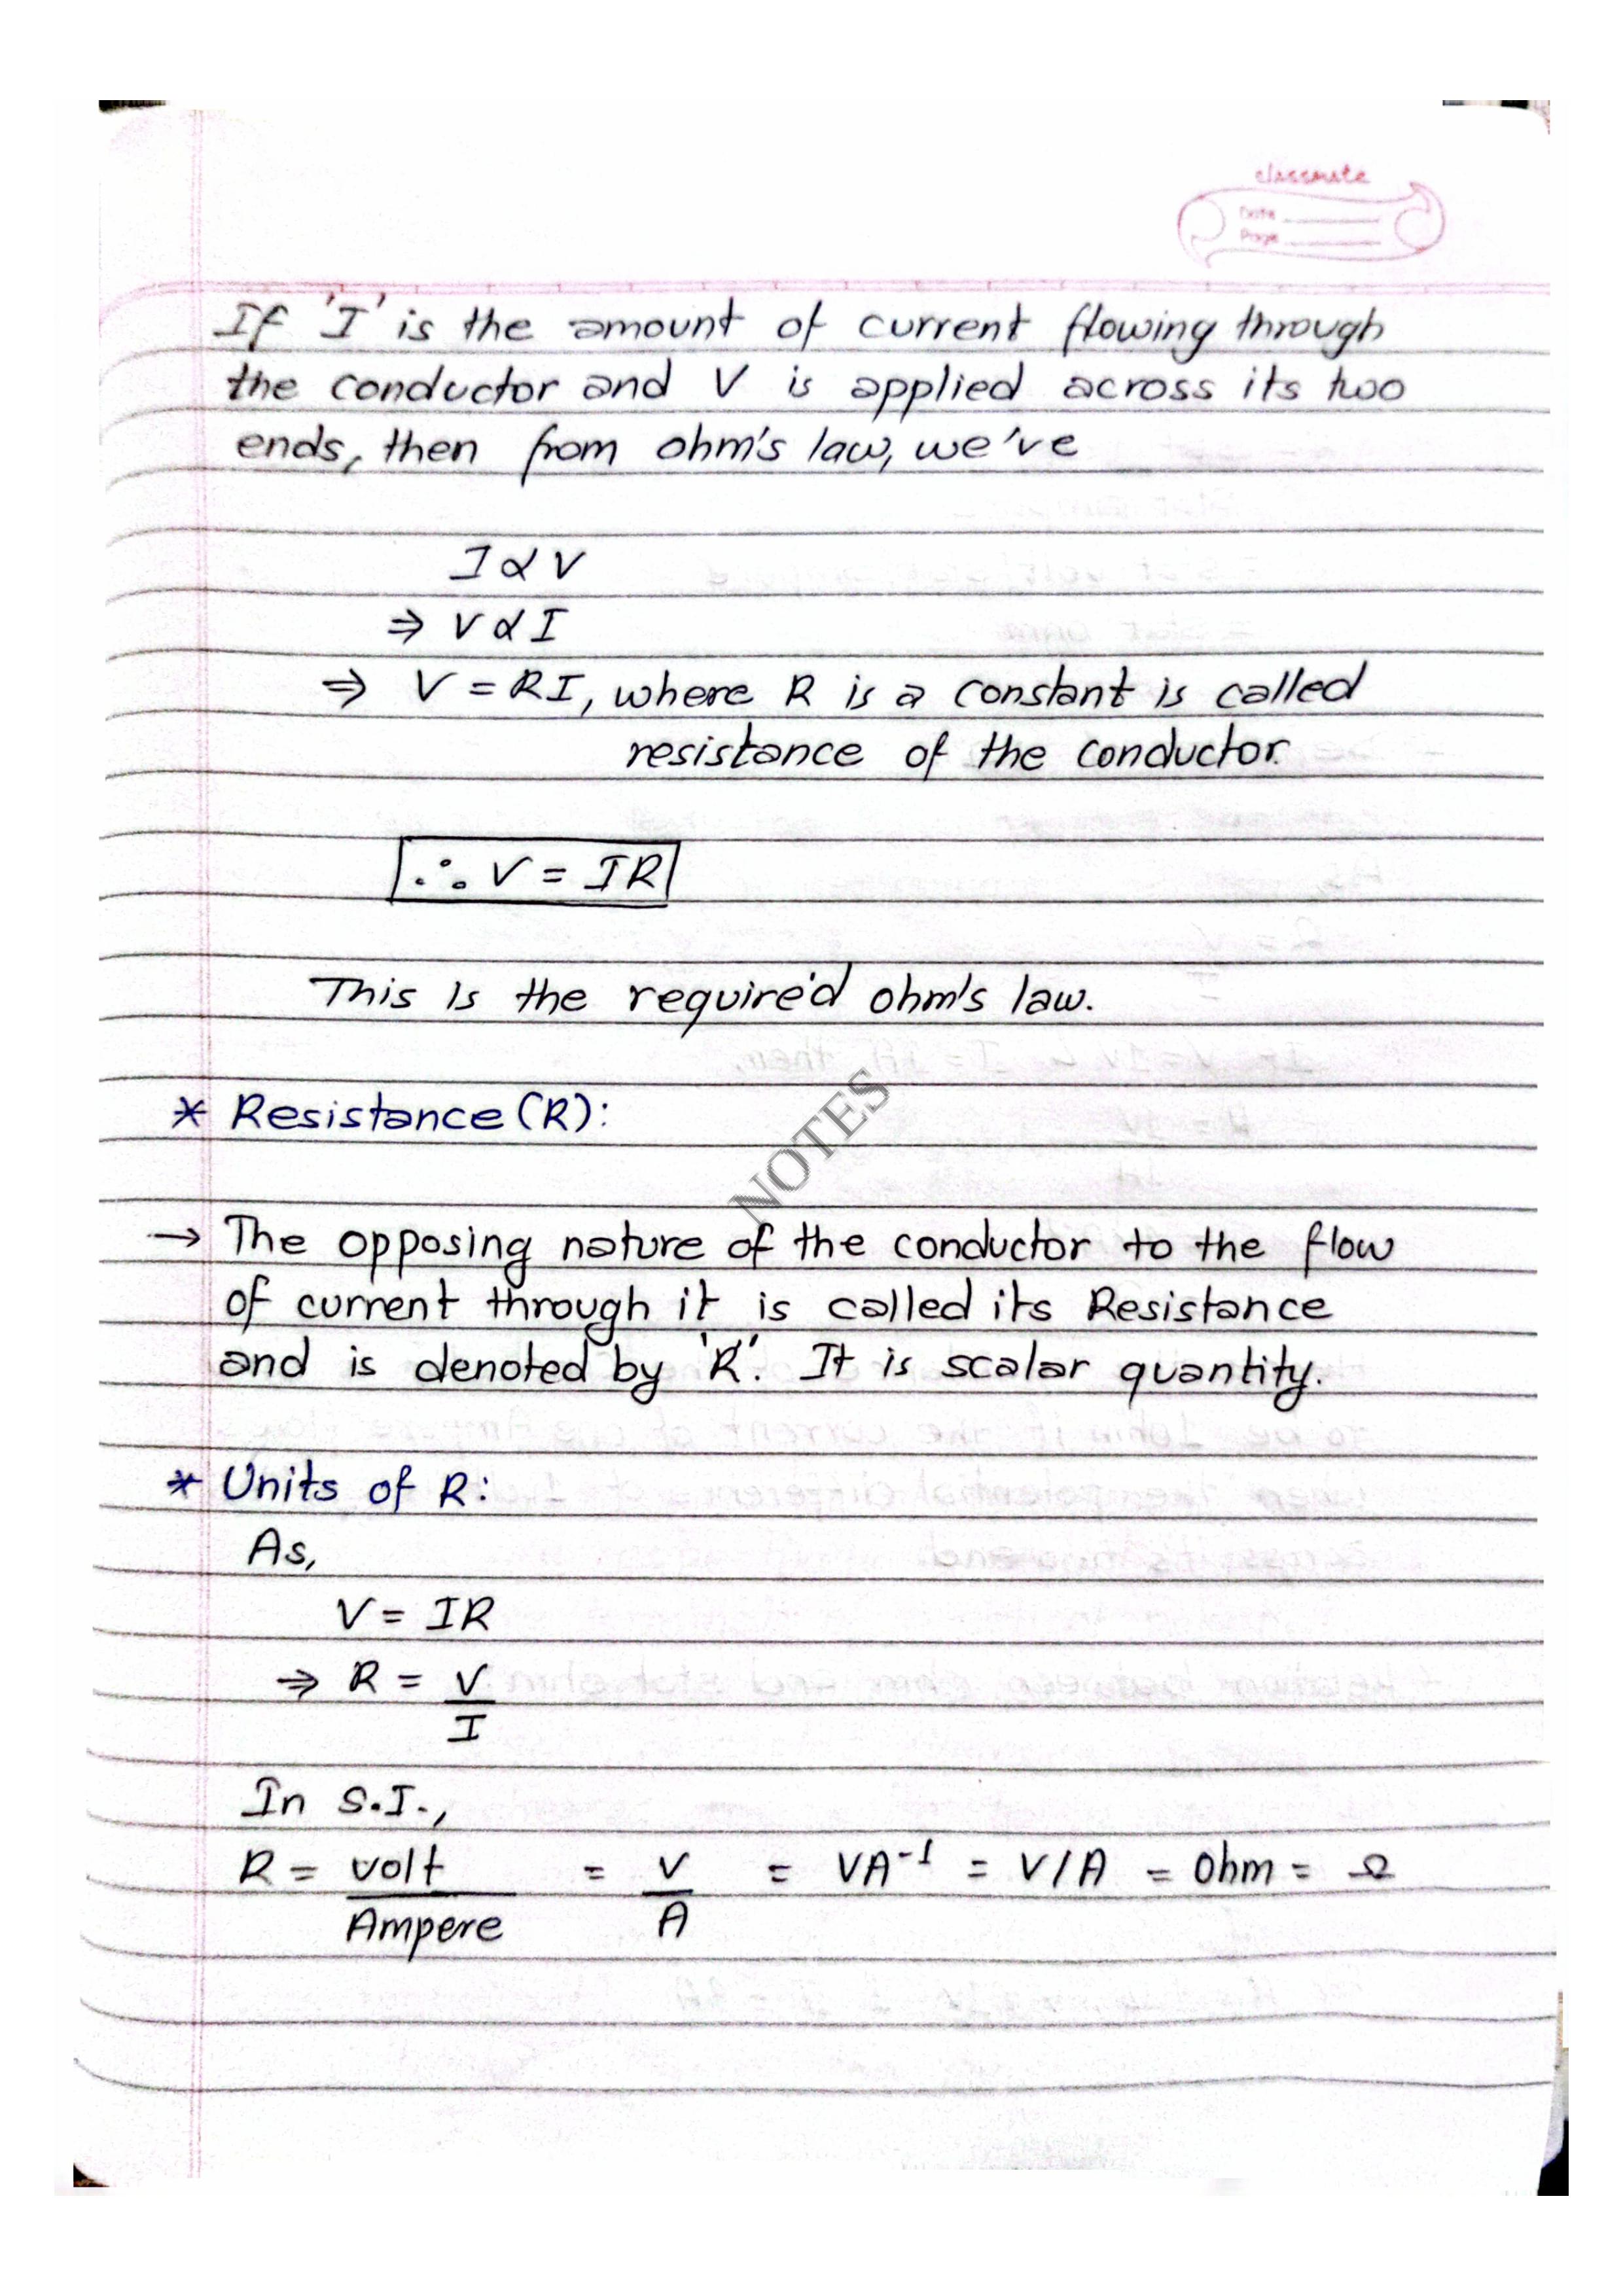 classmate
Date
Page
If 'I' is the amount of current flowing through
the conductor and V is applied across its two
ends, then from ohm's law, we've
I ∝ V
⇒ V ∝ I
⇒ V = RI, where R is a constant is called
resistance of the conductor.
∴ V = IR
This is the required ohm's law.
* Resistance (R):
NOTES
→ The opposing nature of the conductor to the flow
of current through it is called its Resistance
and is denoted by 'R'. It is scalar quantity.
* Units of R:
As,
V = IR
⇒ R = V
I
In S.I.,
R = volt = V = VA⁻¹ = V/A = Ohm = Ω
Ampere A